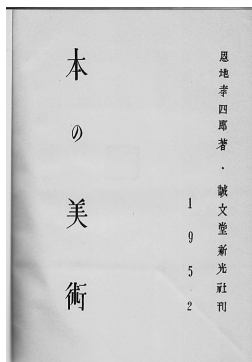 恩地孝四郎著・誠文堂新光社刊
1952
本の美術